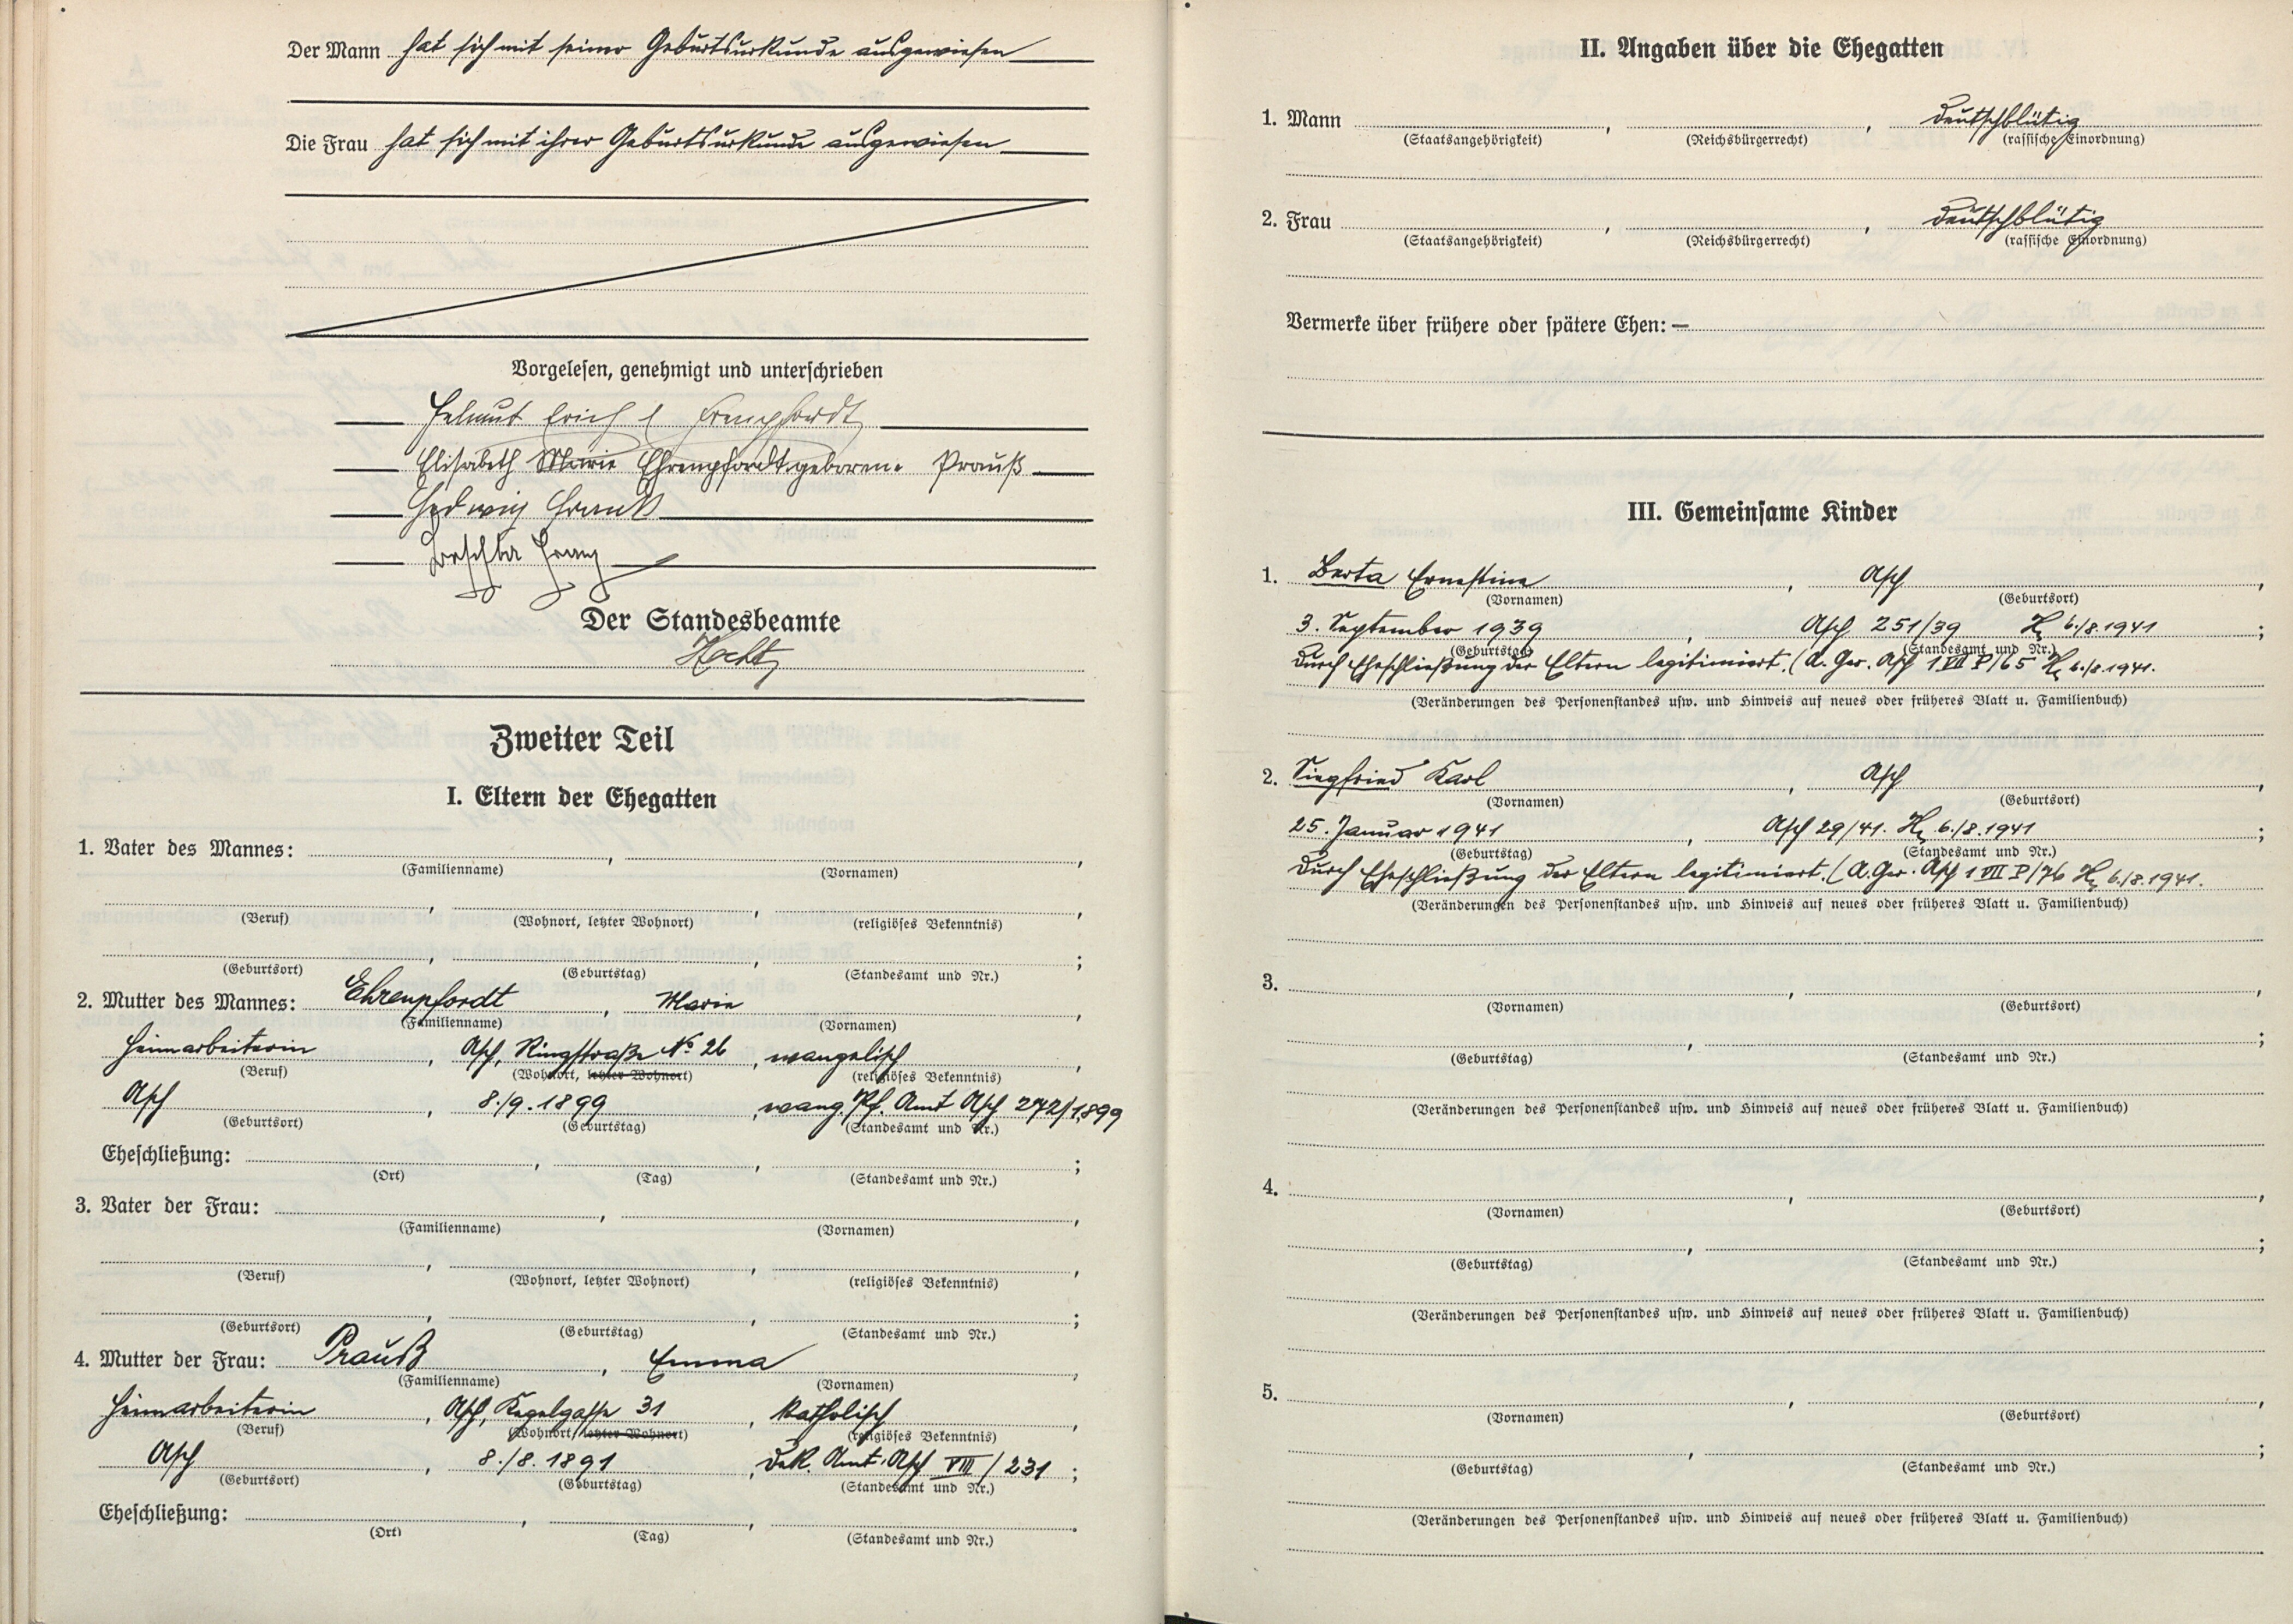 Der Mann hat sich mit seiner Geburtsurkunde ausgewiesen
Die Frau hat sich mit ihrer Geburtsurkunde ausgewiesen
Vorgelesen, genehmigt und unterschrieben
Helmut Erich Ehrenpfordt
Elisabeth Marie Ehrenpfordt geborene Prauß
Hedwig Frank
Franz
Der Standesbeamte
Zweiter Teil
I. Eltern der Ehegatten
1. Vater des Mannes: , ,
(Familienname) (Vornamen)
, , ,
(Beruf) (Wohnort, letzter Wohnort) (religiöses Bekenntnis)
, , ;
(Geburtsort) (Geburtstag) (Standesamt und Nr.)
2. Mutter des Mannes: Ehrenpfordt , Marie ,
(Familienname) (Vornamen)
Heimarbeiterin , Asch, Ringstraße No 26 , evangelisch ,
(Beruf) (Wohnort, letzter Wohnort) (religiöses Bekenntnis)
Asch , 8./9. 1899 , evang. Pf. Amt Asch 272/1899
(Geburtsort) (Geburtstag) (Standesamt und Nr.)
Eheschließung: , , ;
(Ort) (Tag) (Standesamt und Nr.)
3. Vater der Frau: , ,
(Familienname) (Vornamen)
, , ,
(Beruf) (Wohnort, letzter Wohnort) (religiöses Bekenntnis)
, , ;
(Geburtsort) (Geburtstag) (Standesamt und Nr.)
4. Mutter der Frau: Prauß , Emma ,
(Familienname) (Vornamen)
Heimarbeiterin , Asch, Kegelgasse 31 , katholisch ,
(Beruf) (Wohnort, letzter Wohnort) (religiöses Bekenntnis)
Asch , 8./8. 1891 , Dek. Amt. Asch VIII/231 ;
(Geburtsort) (Geburtstag) (Standesamt und Nr.)
Eheschließung: , , .
(Ort) (Tag) (Standesamt und Nr.)
II. Angaben über die Ehegatten
1. Mann , , deutschblütig
(Staatsangehörigkeit) (Reichsbürgerrecht) (rassische Einordnung)
2. Frau , , deutschblütig
(Staatsangehörigkeit) (Reichsbürgerrecht) (rassische Einordnung)
Vermerke über frühere oder spätere Ehen: —
III. Gemeinsame Kinder
1. Berta Ernestine , Asch ,
(Vornamen) (Geburtsort)
3. September 1939 , Asch 251/39 6./8. 1941 ;
(Geburtstag) (Standesamt und Nr.)
durch Eheschließung der Eltern legitimiert. (A. Ger. Asch 1 VII P/65 6./8. 1941.
(Veränderungen des Personenstandes usw. und Hinweis auf neues oder früheres Blatt u. Familienbuch)
2. Siegfried Karl , Asch ,
(Vornamen) (Geburtsort)
25. Januar 1941 , Asch 29/41. 6./8. 1941 ;
(Geburtstag) (Standesamt und Nr.)
durch Eheschließung der Eltern legitimiert. (A. Ger. Asch 1 VII P/76 6./8. 1941.
(Veränderungen des Personenstandes usw. und Hinweis auf neues oder früheres Blatt u. Familienbuch)
3. , ,
(Vornamen) (Geburtsort)
, ;
(Geburtstag) (Standesamt und Nr.)
(Veränderungen des Personenstandes usw. und Hinweis auf neues oder früheres Blatt u. Familienbuch)
4. , ,
(Vornamen) (Geburtsort)
, ;
(Geburtstag) (Standesamt und Nr.)
(Veränderungen des Personenstandes usw. und Hinweis auf neues oder früheres Blatt u. Familienbuch)
5. , ,
(Vornamen) (Geburtsort)
, ;
(Geburtstag) (Standesamt und Nr.)
(Veränderungen des Personenstandes usw. und Hinweis auf neues oder früheres Blatt u. Familienbuch)